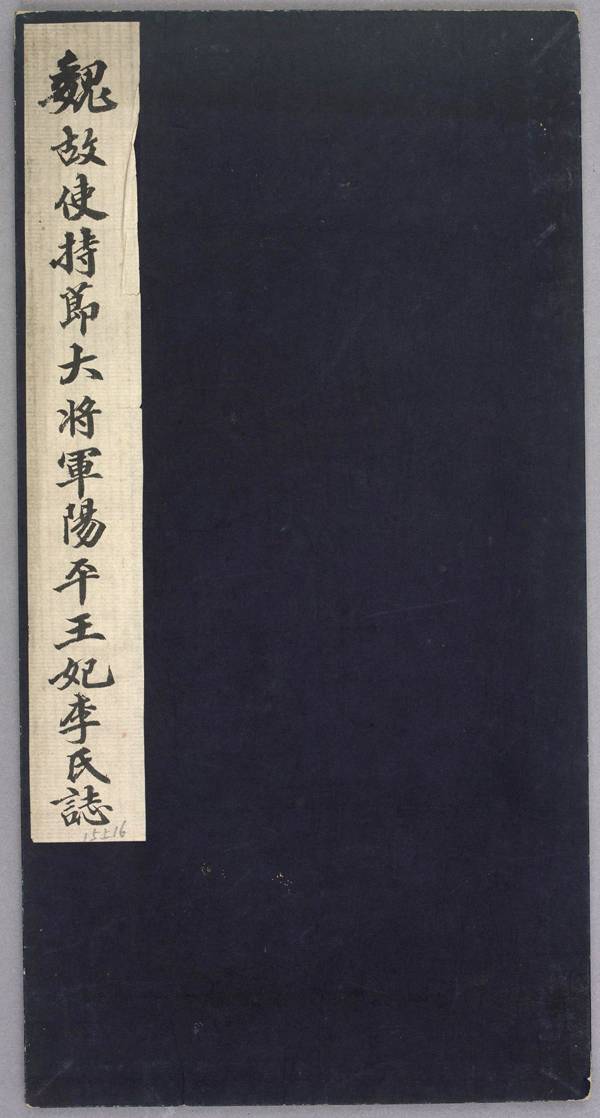 魏故使持節大将軍陽平王妃李氏誌
15516